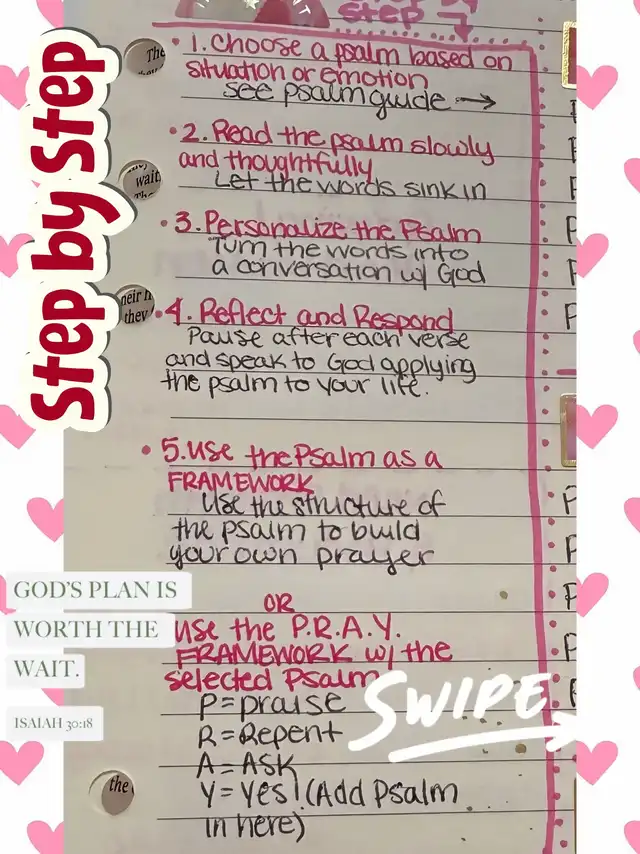 step
Step by Step
• 1. Choose a psalm based on
situation or emotion
see psalm guide →
• 2. Read the psalm slowly
and thoughtfully
Let the words sink in
• 3. Personalize the Psalm
Turn the words into
a conversation w/ God
• 4. Reflect and Respond
Pause after each verse
and speak to God applying
the psalm to your life.
• 5. Use the Psalm as a
FRAMEWORK
Use the structure of
the psalm to build
your own prayer
OR
Use the P.R.A.Y.
FRAMEWORK w/ the
selected Psalm
P = praise
R = Repent
A = ASK
Y = Yes! (Add Psalm
in here)
The
wait
they
the
GOD'S PLAN IS
WORTH THE
WAIT.
ISAIAH 30:18
SWIPE
P
P
P
P
P
P
P